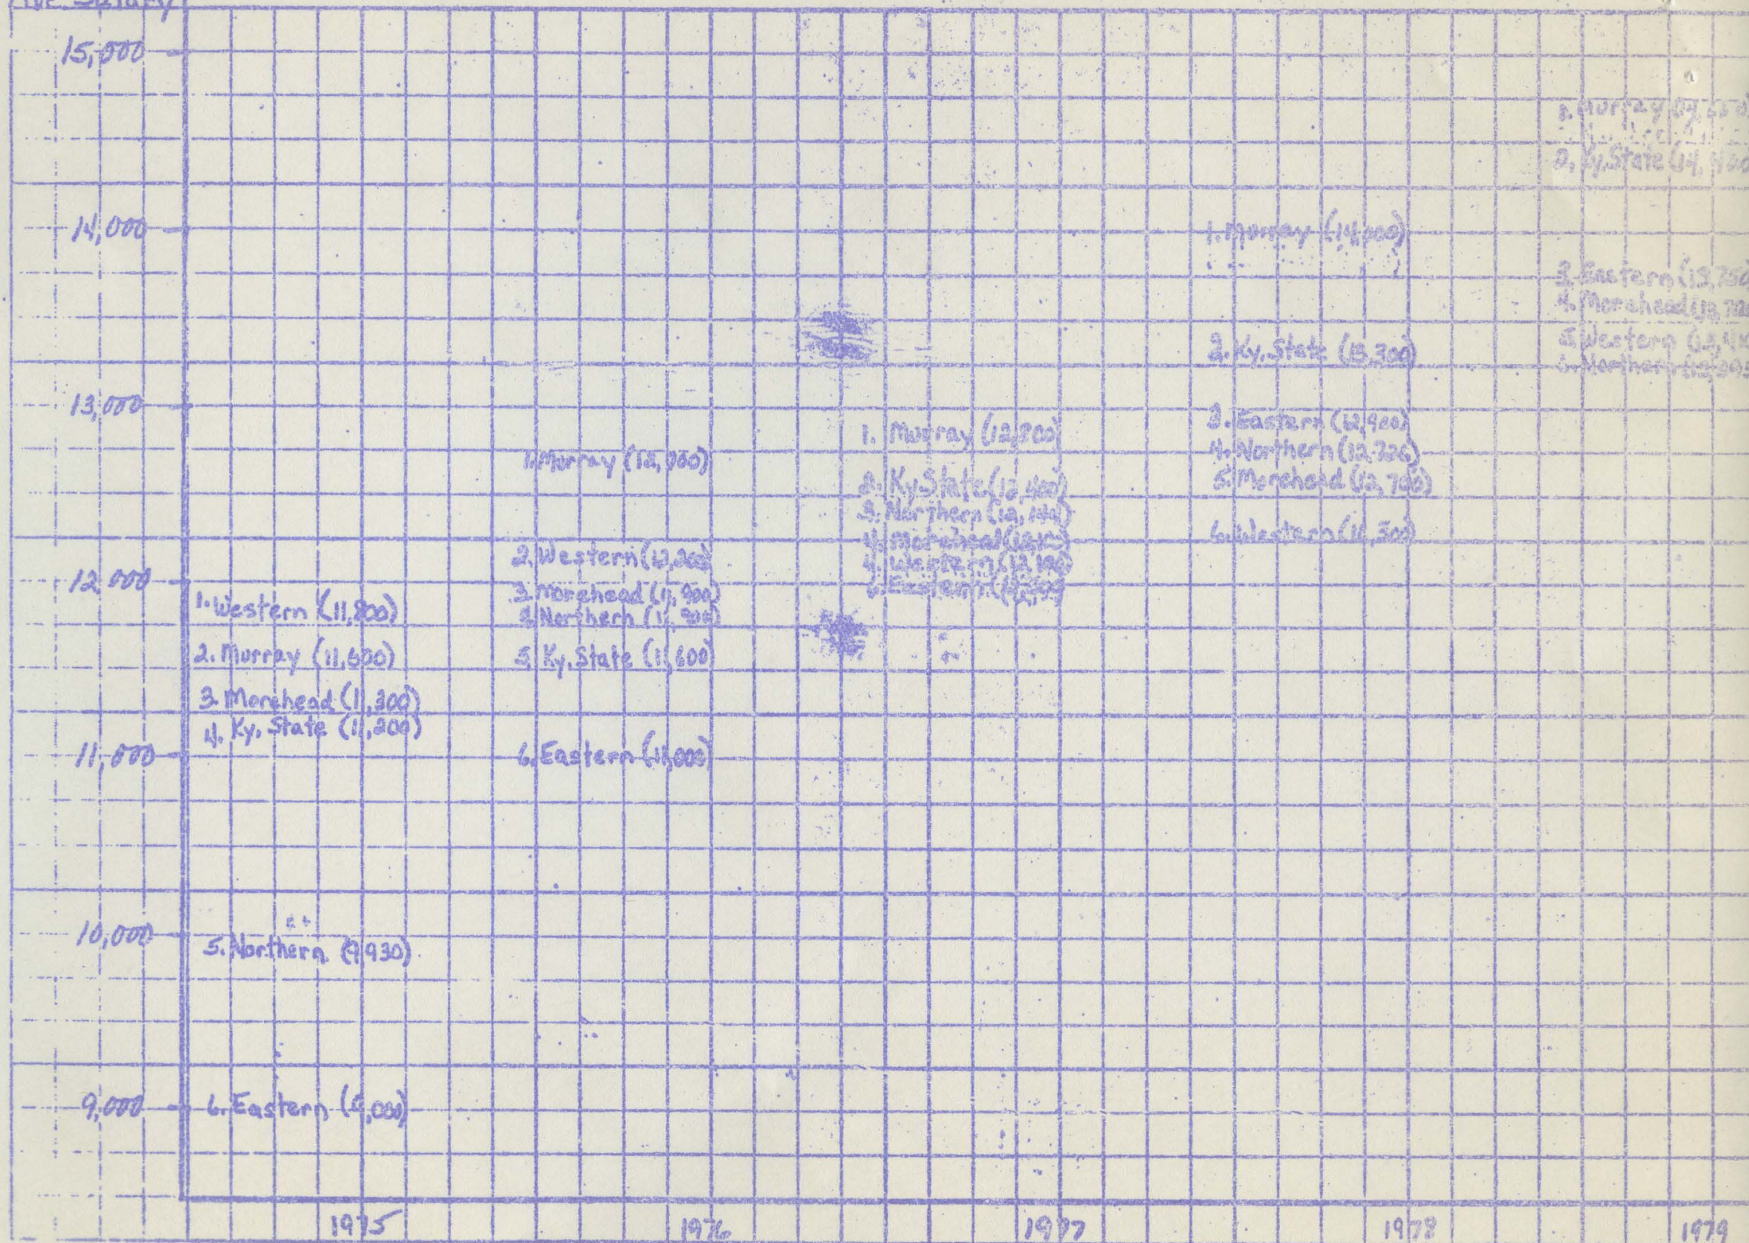 Ave Salary
15,000
14,000
13,000
12,000
11,000
10,000
9,000
1. Western (11,800)
2. Murray (11,600)
3. Morehead (11,300)
4. Ky. State (11,200)
5. Northern (9,930)
6. Eastern (9,000)
1975
1. Murray (12,700)
2. Western (12,200)
3. Morehead (11,900)
3. Northern (11,900)
5. Ky. State (11,600)
6. Eastern (11,000)
1976
1. Murray (12,800)
2. Ky State
3. Northern
4. Morehead
4. Western (12,100)
6. Eastern
1977
1. Murray (14,000)
2. Ky. State (13,300)
3. Eastern (12,900)
4. Northern (12,726)
5. Morehead (12,700)
6. Western
1978
1. Murray
2. Ky. State
3. Eastern (13,750
4. Morehead
5. Western
6. Northern
1979